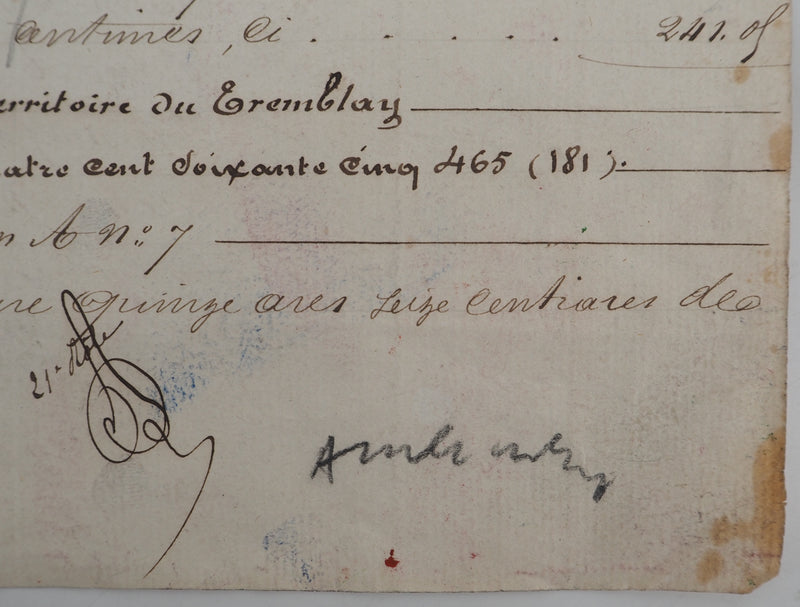 centimes, Ci . . . . . 241.05
erritoire du Tremblay
atre cent Soixante Cinq 465 (181).
n A No: 7
re quinze ares seize centiares de
21e Rôle